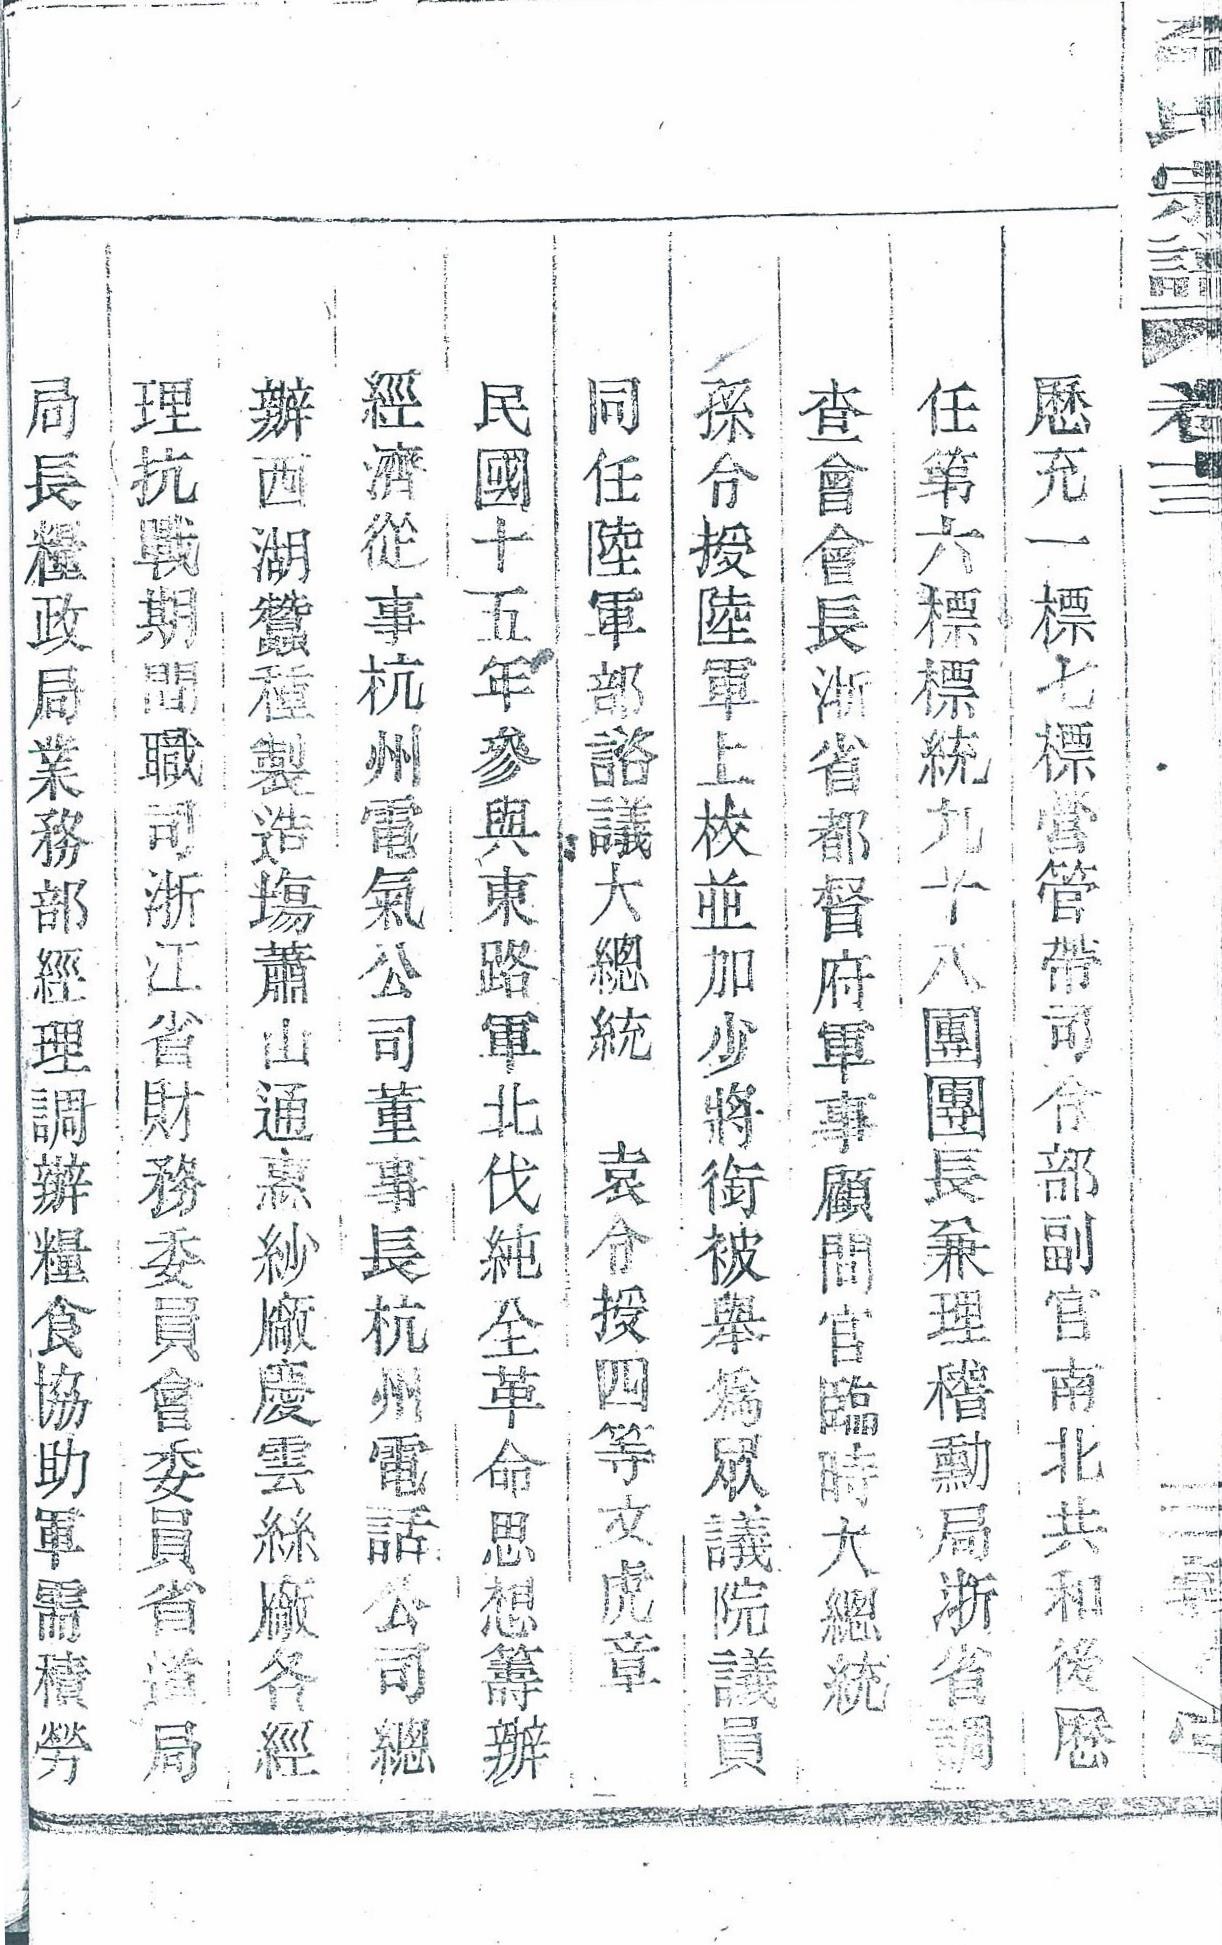 氏宗譜 卷三
歷充一標七標營管帶司令部副官南北共和後歷
任第六標標統九十八團團長兼理稽勳局浙省調
查會會長浙省都督府軍事顧問官臨時大總統
孫令授陸軍上校並加少將銜被舉爲眾議院議員
同任陸軍部諮議大總統 袁令授四等文虎章
民國十五年參與東路軍北伐純全革命思想籌辦
經濟從事杭州電氣公司董事長杭州電話公司總
辦西湖蠶種製造塲蕭山通惠紗廠慶雲絲廠各經
理抗戰期間職司浙江省財務委員會委員省道局
局長糧政局業務部經理調辦糧食協助軍需積勞